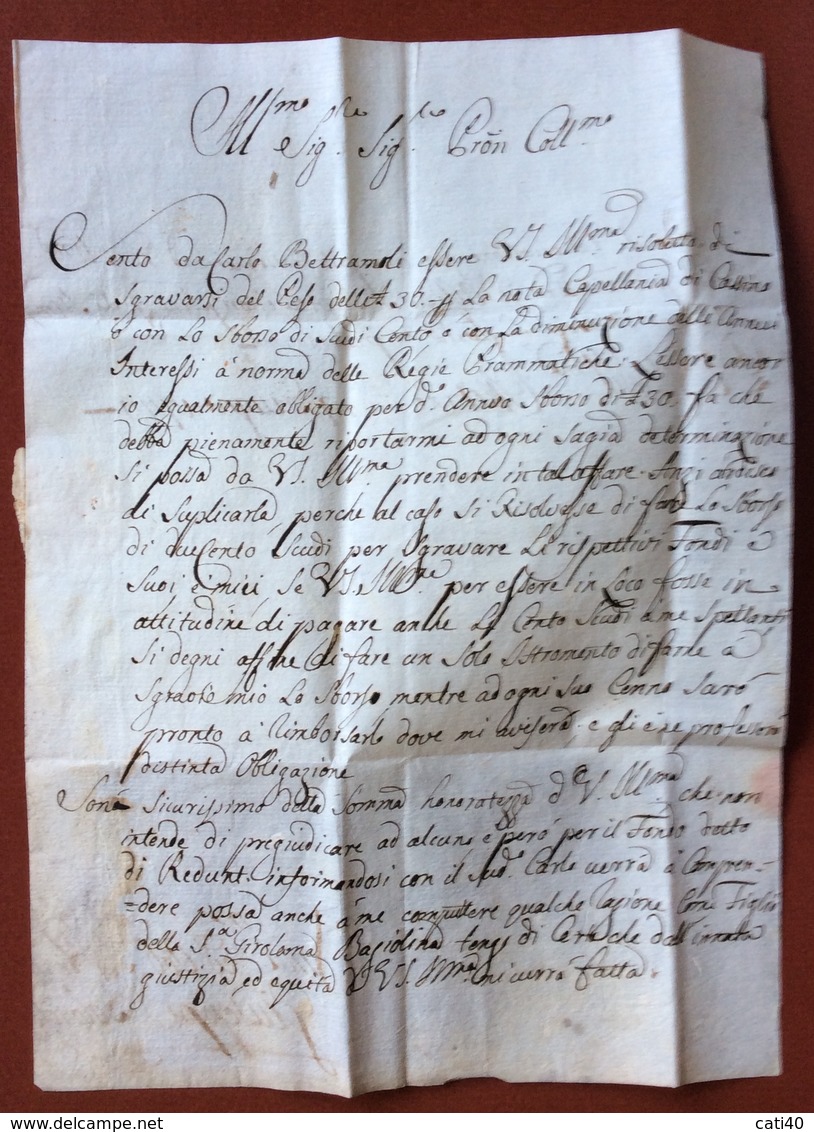 Ill.mo Sig.re Sig.re Pron Coll.mo
Sento da Carlo Bettramoli essere V.S. Ill.ma risoluto di
sgravarsi del Peso delle £ 30. La nota Capellania di Cassine
ò con Lo Sborso di Scudi Cento ò con La diminuzione delli Annui
Interessi à norma delle Regie Prammatiche. L'essere ancor
io egualmente obligato per d.o Annuo Sborso di £ 30. fa che
debba pienamente riportarmi ad ogni sagia determinazione
si possa da V.S. Ill.ma prendere in tal affare. Anzi ardisco
di Suplicarla, perche al caso si Risolvesse di fare Lo Sborso
di duecento Scudi per sgravare Li rispettivi Fondi e
suoi, e miei, se V.S. Ill.ma per essere in Loco fosse in
attitudine di pagare anche Li Cento Scudi a me Spettanti
si degni affine di fare un solo Istromento di farne à
sgravio mio Lo Sborso mentre ad ogni suo Cenno sarò
pronto à Rimborsarlo dove mi aviserà, e gli ene professerò
distinta Obligazione
Sono sicurissimo della somma honoratezza di V.S. Ill.ma che non
intende di pregiudicare ad alcuno e però per il Fondo detto
di Redunt informandosi con il sud.o Carlo verrà à Compren=
=dere possa anche à me competere qualche ragione Come Figlio
della S.ra Girolama Bagiolina tengo di Certo che dall'innata
giustizia ed equità di V.S. Ill.ma mi verrà fatta.
cati40